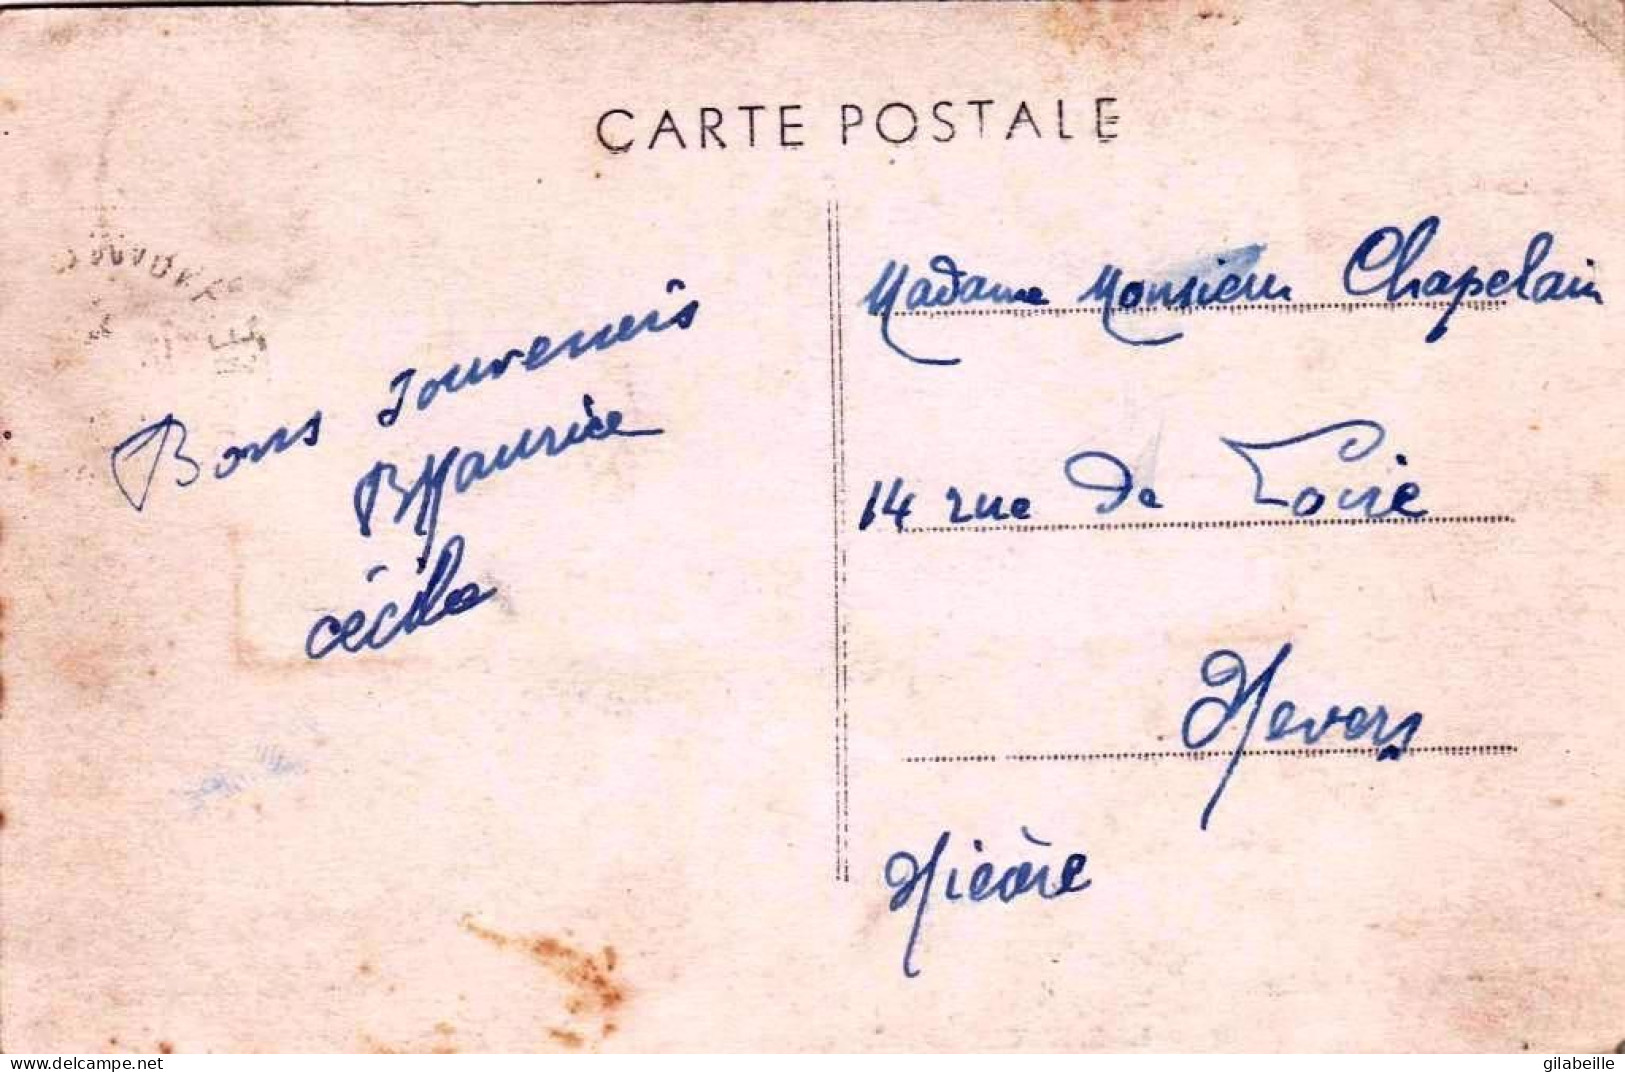 CARTE POSTALE
Bons souvenirs
Maurice
Cécile
Madame Monsieur Chapelain
14 rue de Loire
Nevers
Nièvre
gilabeille